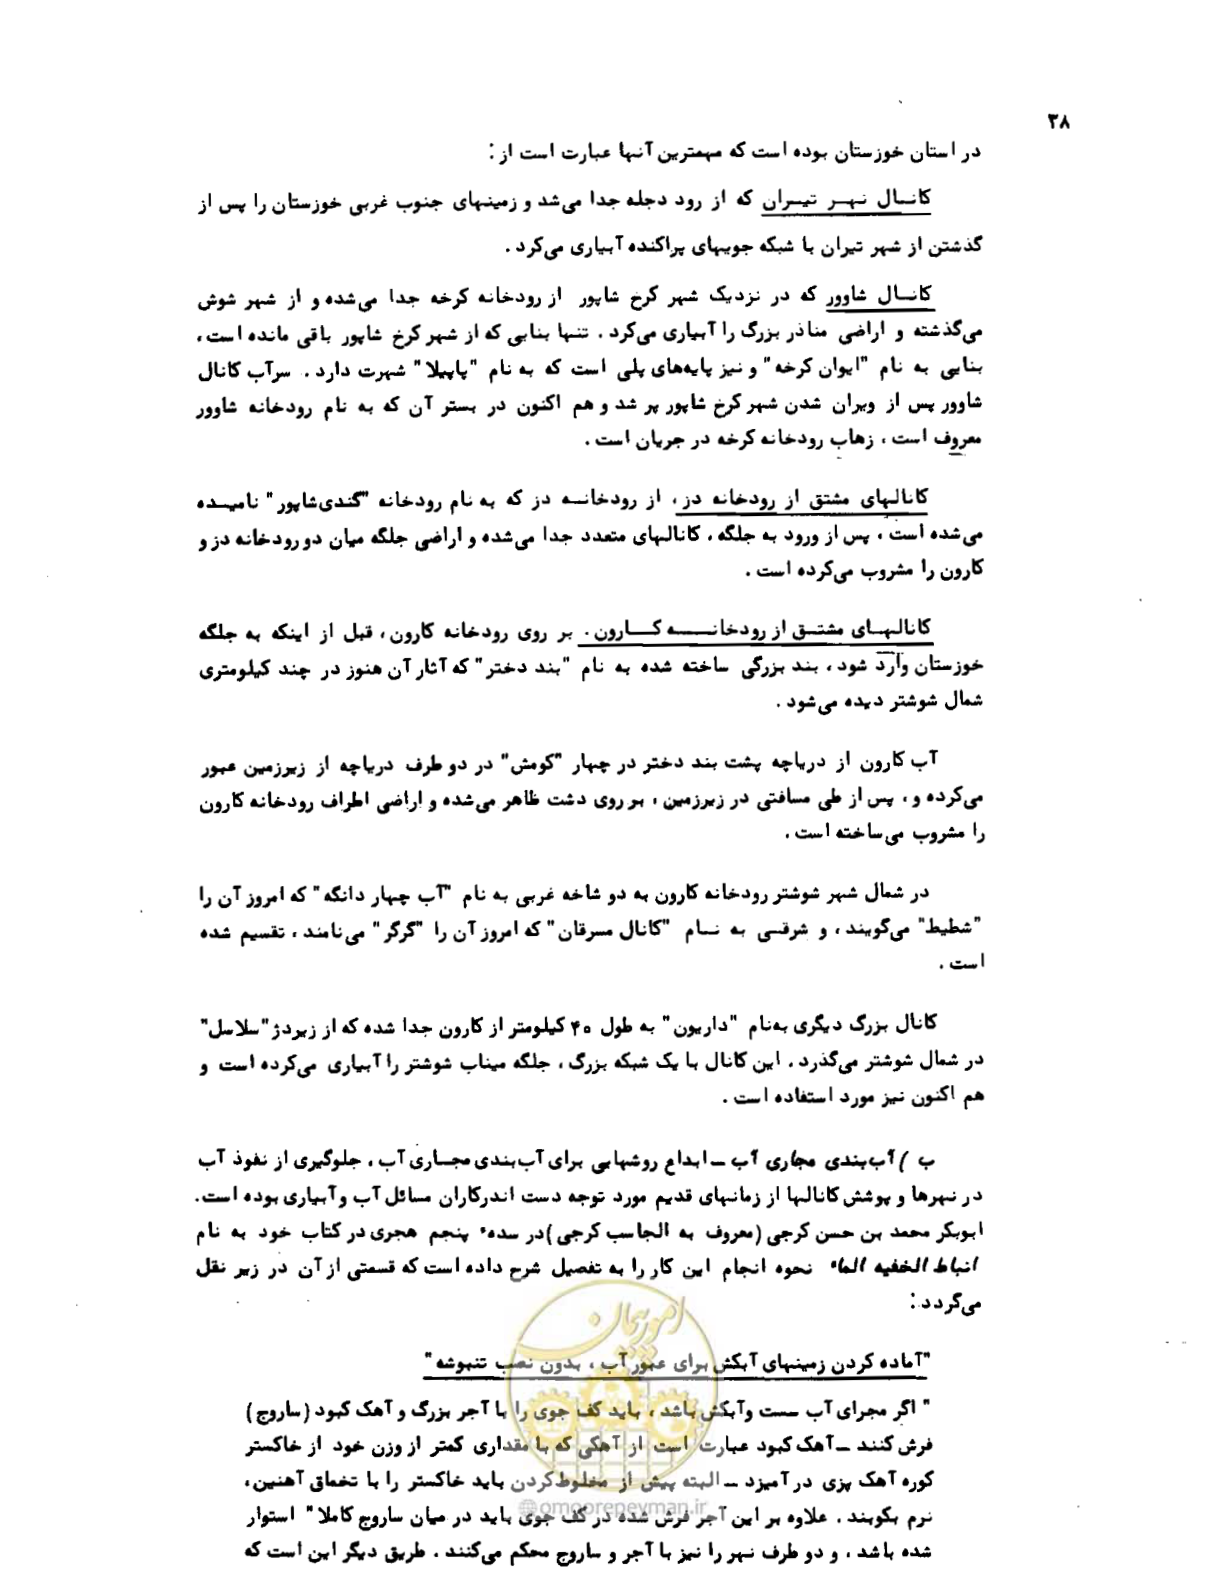 ۳۸
در استان خوزستان بوده است که مهمترین آنها عبارت است از :
کانـال نهـر تیـران که از رود دجله جدا می‌شد و زمینهای جنوب غربی خوزستان را پس از
گذشتن از شهر تیران با شبکه جویهای پراکنده آبیاری می‌کرد .
کانـال شاوور که در نزدیک شهر کرخ شاپور از رودخانه کرخه جدا می‌شده و از شهر شوش
می‌گذشته و اراضی مناذر بزرگ را آبیاری می‌کرد . تنها بنایی که از شهر کرخ شاپور باقی مانده است ،
بنایی به نام "ایوان کرخه" و نیز پایه‌های پلی است که به نام "پاپیلا" شهرت دارد . سرآب کانال
شاوور پس از ویران شدن شهر کرخ شاپور پر شد و هم اکنون در بستر آن که به نام رودخانه شاوور
معروف است ، زهاب رودخانه کرخه در جریان است .
کانالهای مشتق از رودخانه دز ، از رودخانـه دز که به نام رودخانه "گندی‌شاپور" نامیـده
می‌شده است ، پس از ورود به جلگه ، کانالهای متعدد جدا می‌شده و اراضی جلگه میان دو رودخانه دز و
کارون را مشروب می‌کرده است .
کانالهـای مشتـق از رودخانـــه کـارون . بر روی رودخانه کارون ، قبل از اینکه به جلگه
خوزستان وارد شود ، بند بزرگی ساخته شده به نام "بند دختر" که آثار آن هنوز در چند کیلومتری
شمال شوشتر دیده می‌شود .
آب کارون از دریاچه پشت بند دختر در چهار "کومش" در دو طرف دریاچه از زیرزمین عبور
می‌کرده و ، پس از طی مسافتی در زیرزمین ، بر روی دشت ظاهر می‌شده و اراضی اطراف رودخانه کارون
را مشروب می‌ساخته است .
در شمال شهر شوشتر رودخانه کارون به دو شاخه غربی به نام "آب چهار دانگه" که امروز آن را
"شطیط" می‌گویند ، و شرقـی به نـام "کانال مسرقان" که امروز آن را "گرگر" می‌نامند ، تقسیم شده
است .
کانال بزرگ دیگری به‌نام "داریون" به طول ۴۰ کیلومتر از کارون جدا شده که از زیردژ "سلاسل"
در شمال شوشتر می‌گذرد . این کانال با یک شبکه بزرگ ، جلگه میناب شوشتر را آبیاری می‌کرده است و
هم اکنون نیز مورد استفاده است .
ب ) آب‌بندی مجاری آب ـ ابداع روشهایی برای آب‌بندی مجـاری آب ، جلوگیری از نفوذ آب
در نهرها و پوشش کانالها از زمانهای قدیم مورد توجه دست اندرکاران مسائل آب و آبیاری بوده است .
ابوبکر محمد بن حسن کرجی (معروف به الحاسب کرجی )در سدهٔ پنجم هجری در کتاب خود به نام
انباط الخفیه الماء نحوه انجام این کار را به تفصیل شرح داده است که قسمتی از آن در زیر نقل
می‌گردد :
"آماده کردن زمینهای آبکش برای عبور آب ، بدون نصب تنبوشه"
" اگر مجرای آب سست و آبکش باشد ، باید کف جوی را با آجر بزرگ و آهک کبود (ساروج )
فرش کنند ـ آهک کبود عبارت است از آهکی که با مقداری کمتر از وزن خود از خاکستر
کوره آهک پزی در آمیزد ـ البته پیش از مخلوط کردن باید خاکستر را با تخماق آهنین ،
نرم بکوبند . علاوه بر این آجر فرش شده در کف جوی باید در میان ساروج کاملا" استوار
شده باشد ، و دو طرف نهر را نیز با آجر و ساروج محکم می‌کنند . طریق دیگر این است که
امور پیمان
@omoorepeyman.ir